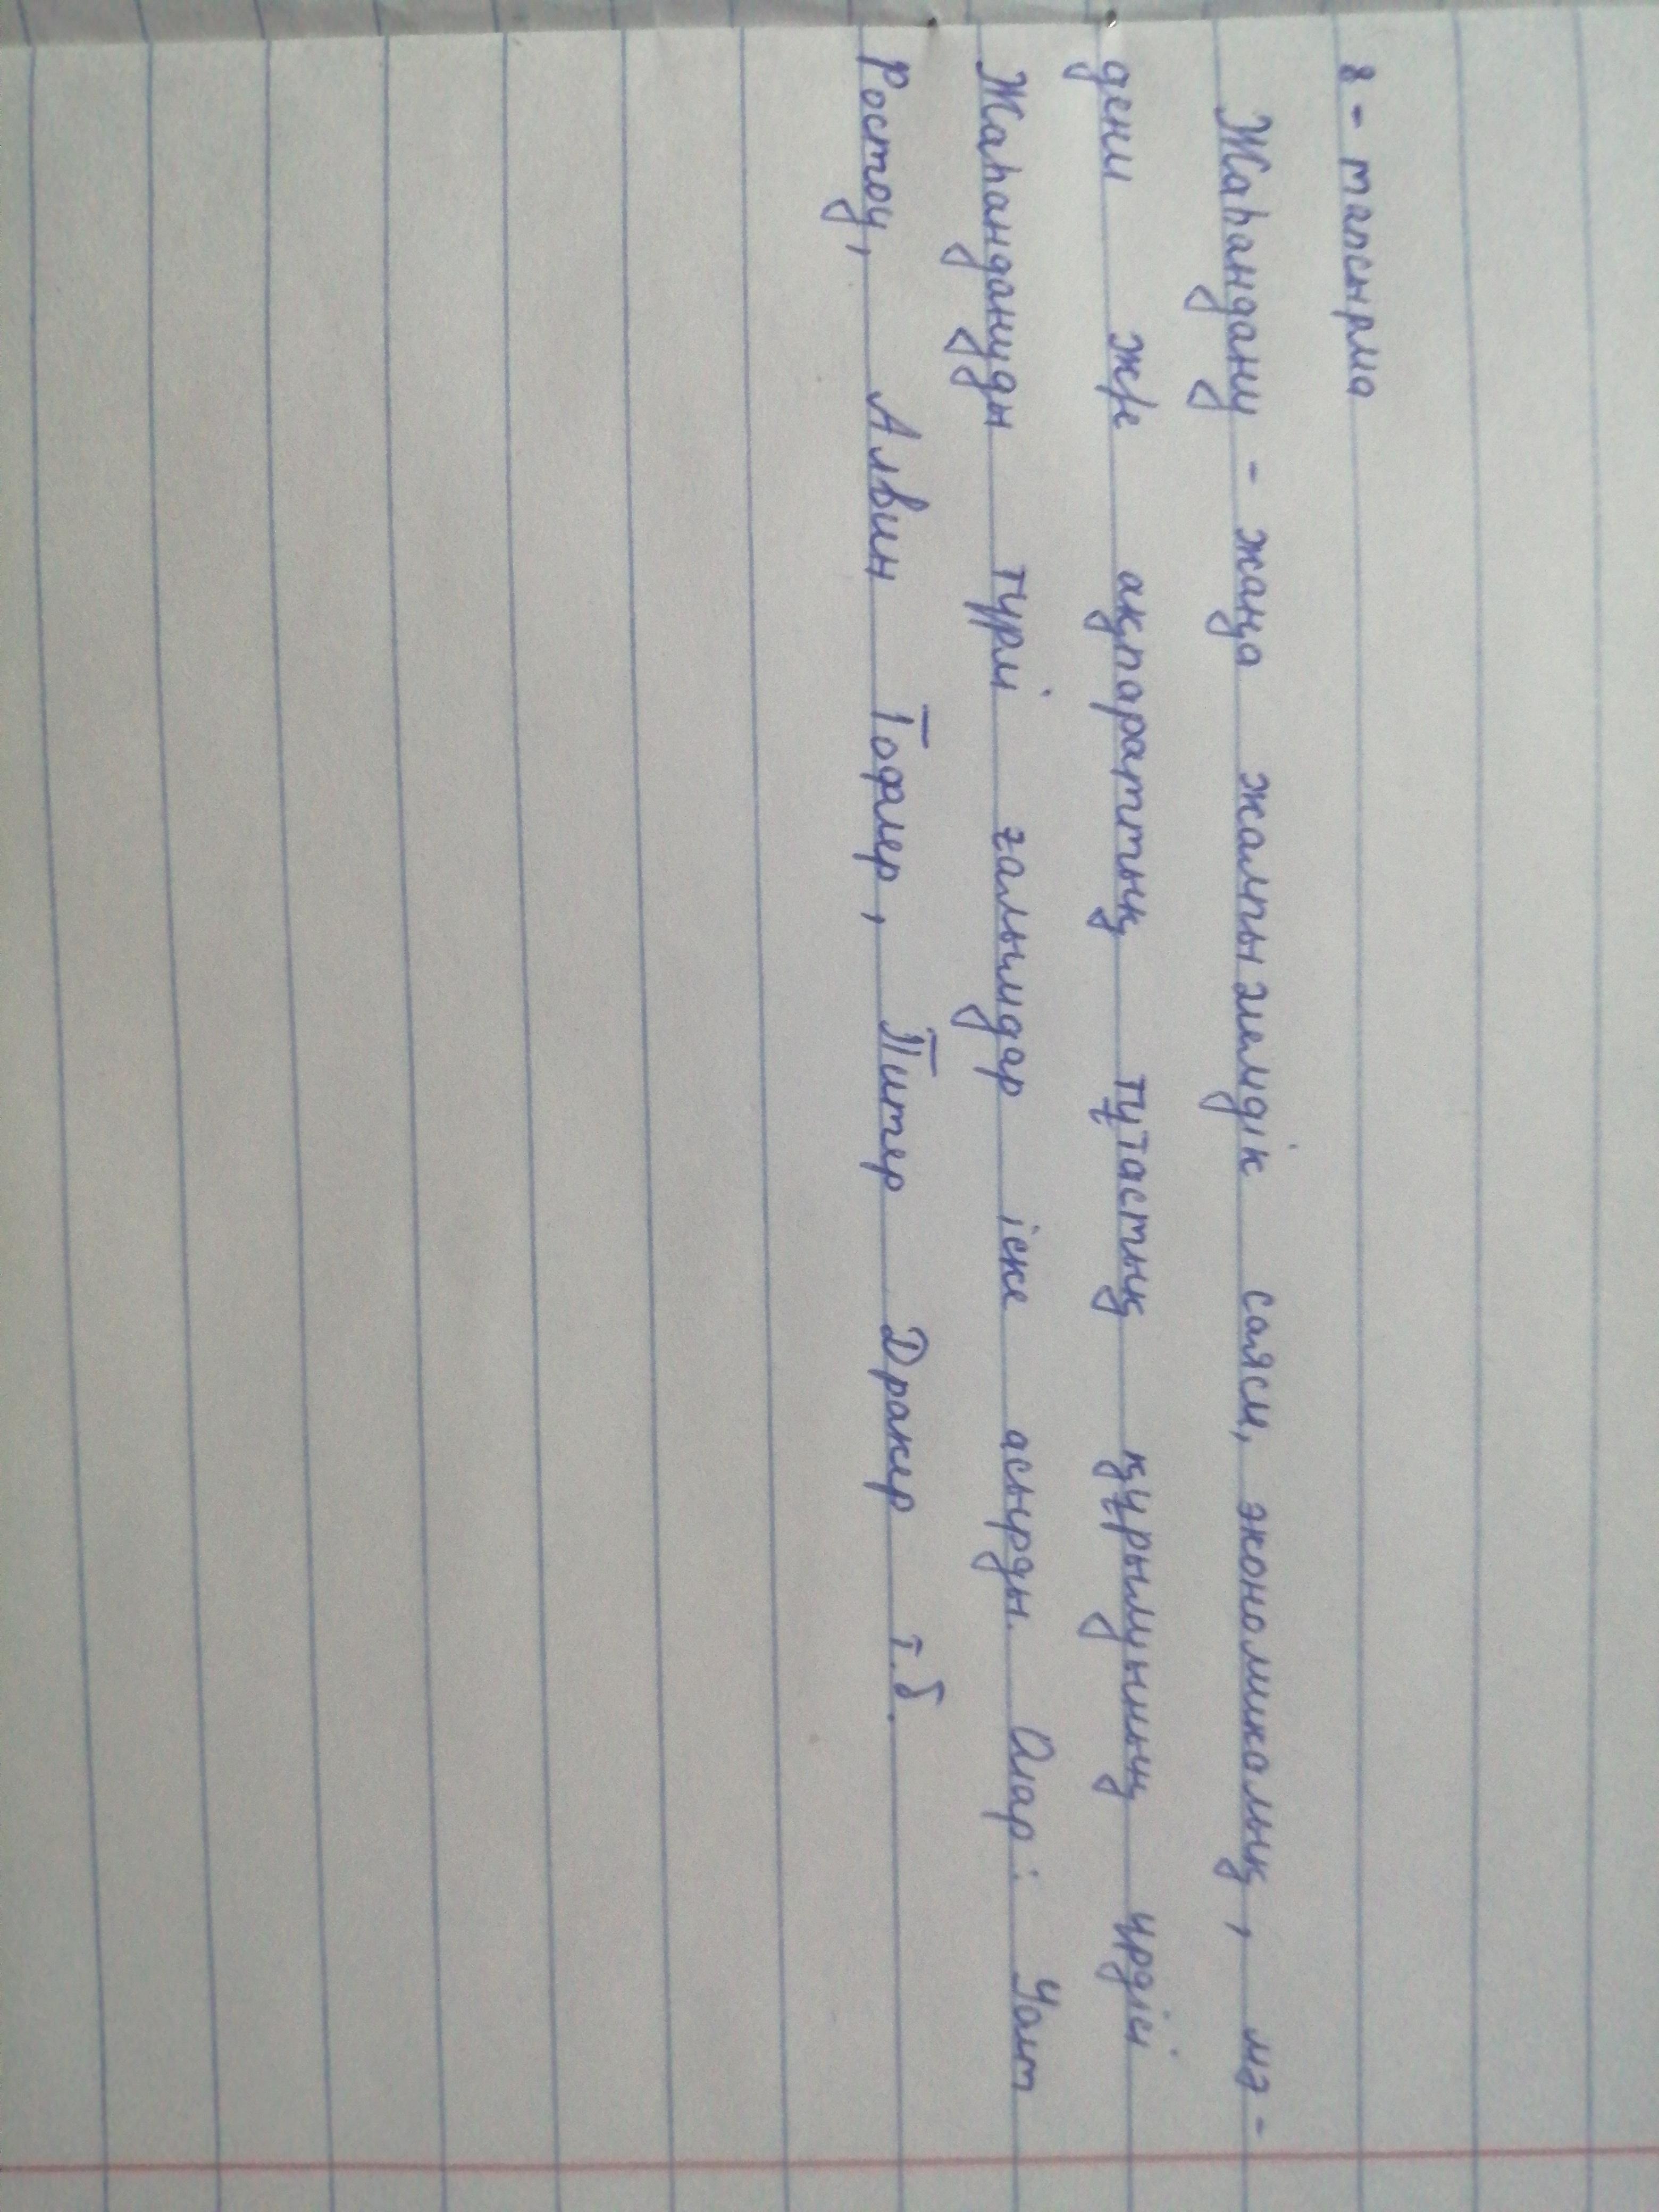 8 - тапсырма
Жаһандану - жаңа жалпыәлемдік саяси, экономикалық, мә-
дени ж/е ақпараттық тұтастық құрылуының үрдісі
Жаһандануды түрлі ғалымдар іске асырды. Олар: Уолт
Ростоу, Алвин Тофлер, Питер Дракер т.б.